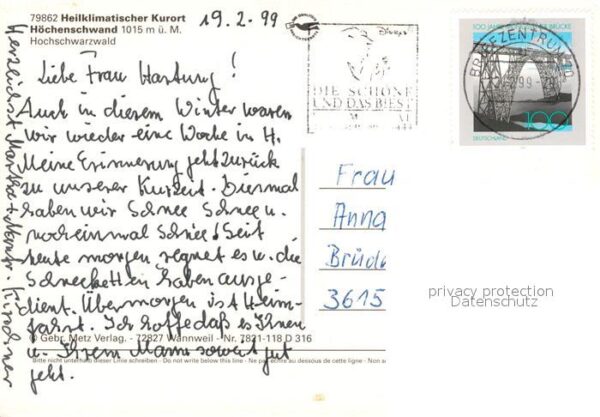 79862 Heilklimatischer Kurort
Höchenschwand 1015 m ü. M.
Hochschwarzwald
19.2-99
Liebe Frau Hartung!
Auch in diesem Winter waren
wir wieder eine Woche in H.
Meine Erinnerung geht zurück
zu unserer Kurzeit. Diesmal
haben wir Schnee Schnee u.
nocheinmal Schnee! Seit
heute morgen regnet es u. die
Schneeketten haben ausge-
dient. Übermorgen ist Heim-
fahrt. Ich hoffe daß es Ihnen
u. Ihrem Mann soweit gut
geht.
Herzlichst Martha + Kirchner
© Gebr. Metz Verlag. - 72827 Wannweil - Nr. 7821-118 D 316
Bitte nicht unterhalb dieser Linie schreiben - Do not write below this line - Ne pas écrire au dessous de cette ligne - Non sc
Disneys
DIE SCHÖNE
UND DAS BIEST
BRIEFZENTRUM
99
100 JAHRE BRÜCKE
100
DEUTSCHLAND
Frau
Anna
Brüd
3615
privacy protection
Datenschutz